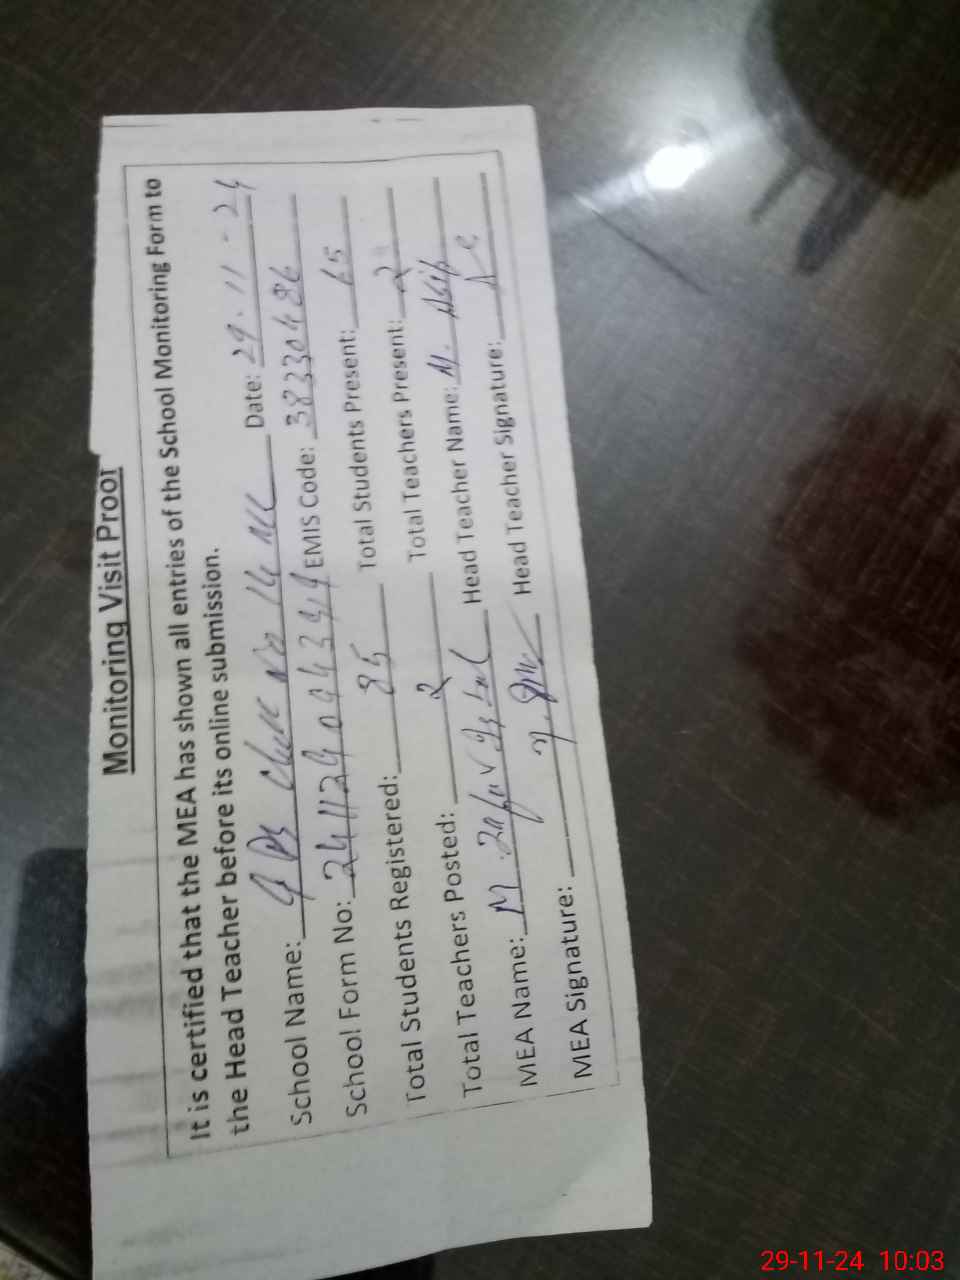 Monitoring Visit Proof
It is certified that the MEA has shown all entries of the School Monitoring Form to
the Head Teacher before its online submission.
School Name: G Ps Chak No 14 Date: 29-11-24
School Form No: EMIS Code: 38330486
Total Students Registered: 85 Total Students Present: 65
Total Teachers Posted: 2 Total Teachers Present: 2
MEA Name: M. Head Teacher Name: M. Asif
MEA Signature: Head Teacher Signature:
29-11-24 10:03